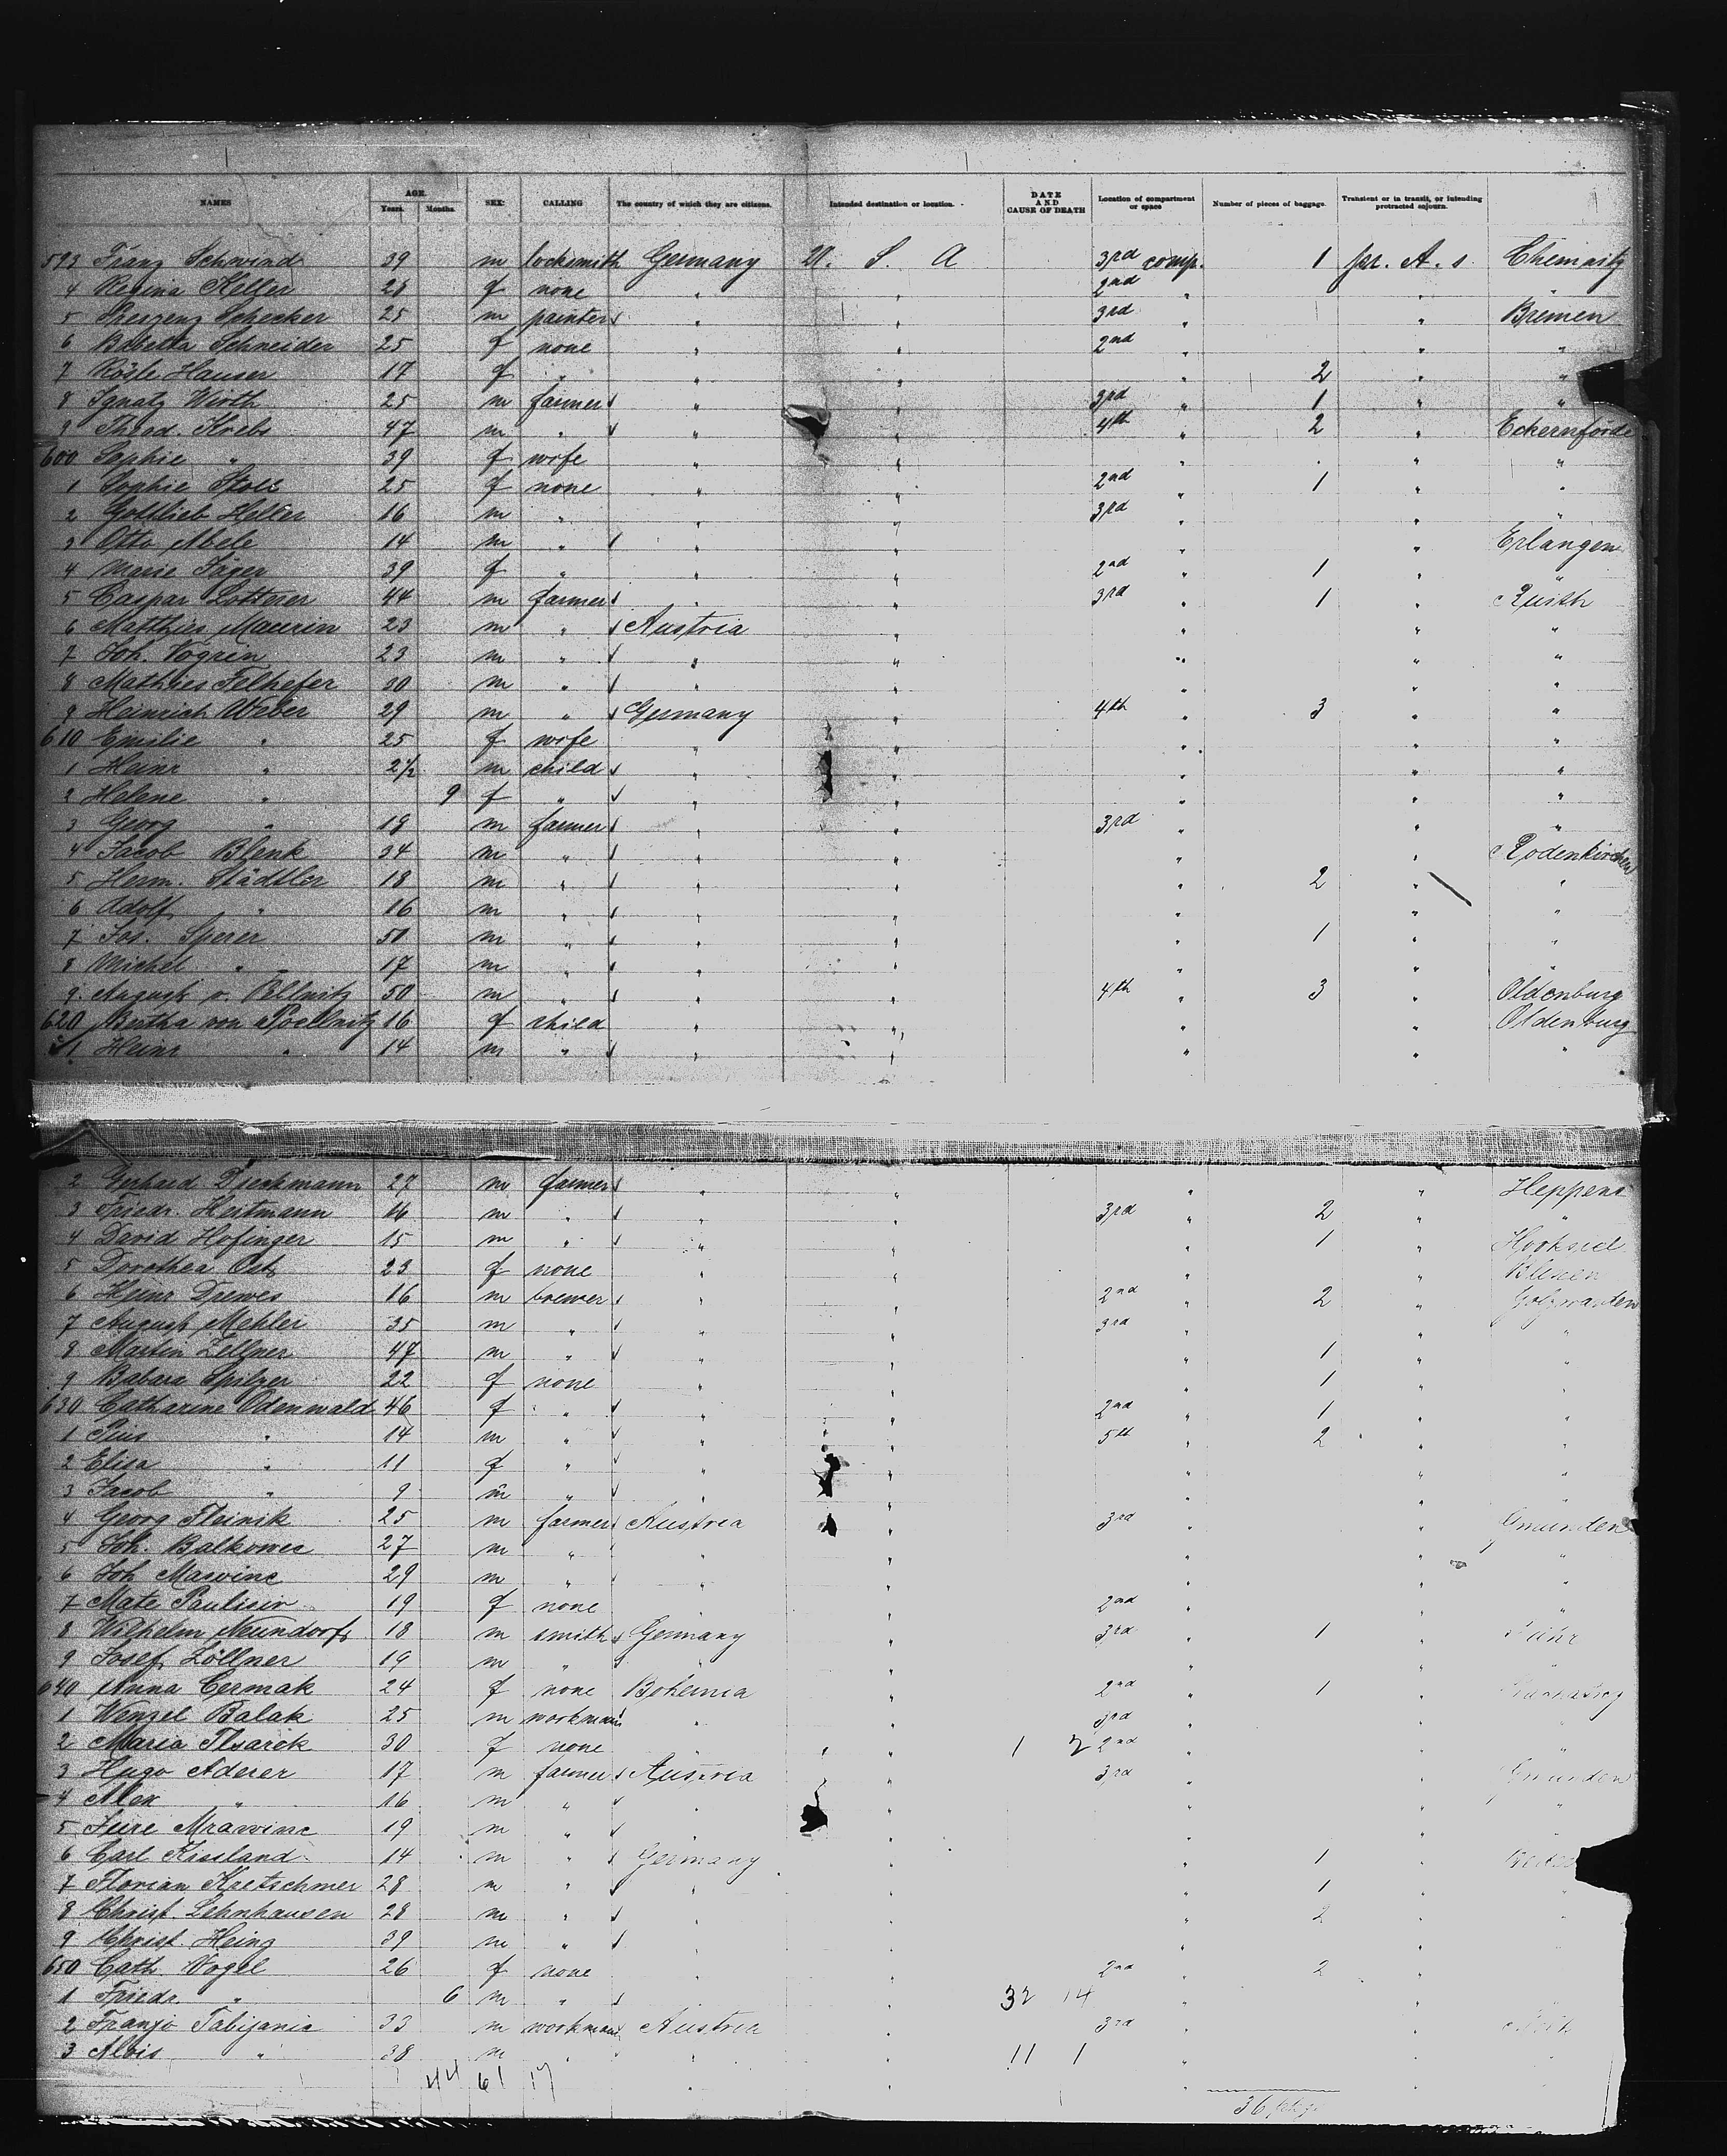 NAMES AGE. Years. Months. SEX CALLING The country of which they are citizens. Intended destination or location. DATE AND CAUSE OF DEATH Location of compartment or space Number of pieces of baggage. Transient or in transit, or intending protracted sojourn.
593 Franz Schwind 39 m locksmith Germany U. S. A 3rd comp. 1 pr. A. s. Chemnitz
4 Regina Keller 28 f none " " 2nd " " "
5 Schecker 25 m painter " " 3rd " " Bremen
6 Bertha Schneider 25 f none " " 2nd " " "
7 Rösle Hauser 17 f " " " " 2 " "
8 Ignatz Wirth 25 m farmer " " 3rd " 1 " "
9 Theod. Krebs 47 m " " " 4th " 2 " Eckernförde
600 Sophie " 39 f wife " " " " "
1 Sophie 25 f none " " 2nd " 1 " "
2 Gottlieb Heller 16 m " " " 3rd " " "
3 Otto Abele 14 m " " " " " Erlangen
4 Marie Jäger 39 f " " " 2nd " 1 " "
5 Caspar Lottner 44 m farmer " " 3rd " 1 "
6 Matthias Maurin 23 m " Austria " " " "
7 Joh. Vogrin 23 m " " " " " "
8 Mathies Felhofer 30 m " " " " " "
9 Heinrich Weber 29 m " Germany " 4th " 3 " "
610 Emilie " 25 f wife " " " " "
1 Heinr " 2½ m child " " " " "
2 Helene " 9 f " " " " " "
3 Georg " 19 m farmer " " 3rd " " "
4 Jacob Blenk 34 m " " " " " Rodenkirchen
5 Herm. Städtler 18 m " " " " 2 " "
6 Adolf " 16 m " " " " " "
7 Jos. Sperer 50 m " " " " 1 " "
8 Michel " 17 m " " " " " "
9 August v. Pöllnitz 50 m " " " 4th " 3 " Oldenburg
620 Bertha von Poellnitz 16 f child " " " " Oldenburg
1 Heinr " 14 m " " " " " "
2 Gerhard Dieckmann 27 m farmer " " " " Heppens
3 Friedr. Heitmann m " " " 3rd " 2 " "
4 David Hofinger 15 m " " " " 1 " Hooksiel
5 Dorothea 23 f none " " " " Blexen
6 Heinr Drewes 16 m brewer " " 2nd " 2 " Golzwarden
7 August Mehler 35 m " " " 3rd " " "
8 Martin Zellner 47 m " " " " 1 " "
9 Babara Spilger 22 f none " " " 1 " "
630 Catharine Odenwald 46 f " " " 2nd " 1 " "
1 Pius " 14 m " " " 5th " 2 " "
2 Elisa " 11 f " " " " " "
3 Jacob " 9 m " " " " " "
4 Georg Fleinik 25 m farmer Austria " 3rd " " Gmunden
5 Joh. Balkovec 27 m " " " " " "
6 Joh Maswinc 29 m " " " " " "
7 Mate Paulisin 19 f none " " 2nd " " "
8 Wilhelm Neundorf 18 m smith Germany " 3rd " 1 "
9 Josef Zöllner 19 m " " " " " "
640 Anna Cermak 24 f none Bohemia " 2nd " 1 "
1 Wenzel Balak 25 m workman " " 3rd " " "
2 Maria 30 f none " " 1 2nd " " "
3 Hugo Aderer 17 m farmer Austria " 3rd " " Gmunden
4 Alex " 16 m " " " " " "
5 Jure Mrawinc 19 m " " " " "
6 Carl Kissland 14 m " Germany " " 1 "
7 Florian Kretschmer 28 m " " " " 1 " "
8 Christ. Lehnhausen 28 m " " " " 2 " "
9 Christ. Heinz 39 m " " " " " "
650 Cath. Vogel 26 f none " " 2nd " 2 "
1 Friedr. " 6 m " " " 32 14 " " "
2 Franjo Tabijania 33 m workman Austria " 3rd " "
3 Alois " 38 m " " " 11 1 " " "
44 61 17
36